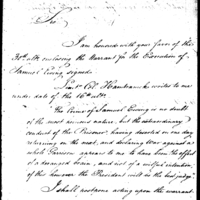 Sir
I am honored with your favor of the
30th ulto. enclosing the Warrant for the Execution of
Samuel Ewing signed.
Lieut. Col. Hamtramck writes to me
under date of the 16th ulto.
The Crime of Samuel Ewing is no doubt
of the most serious nature, but the extraordinary
conduct of the Prisoner, having deserted on one day,
returning on the next, and declaring War against a
whole Garrison appears to me to have been the effect
of a deranged brain, and not of wilful intention,
of this however the President will be the best judge.
I shall postpone acting upon the warrant